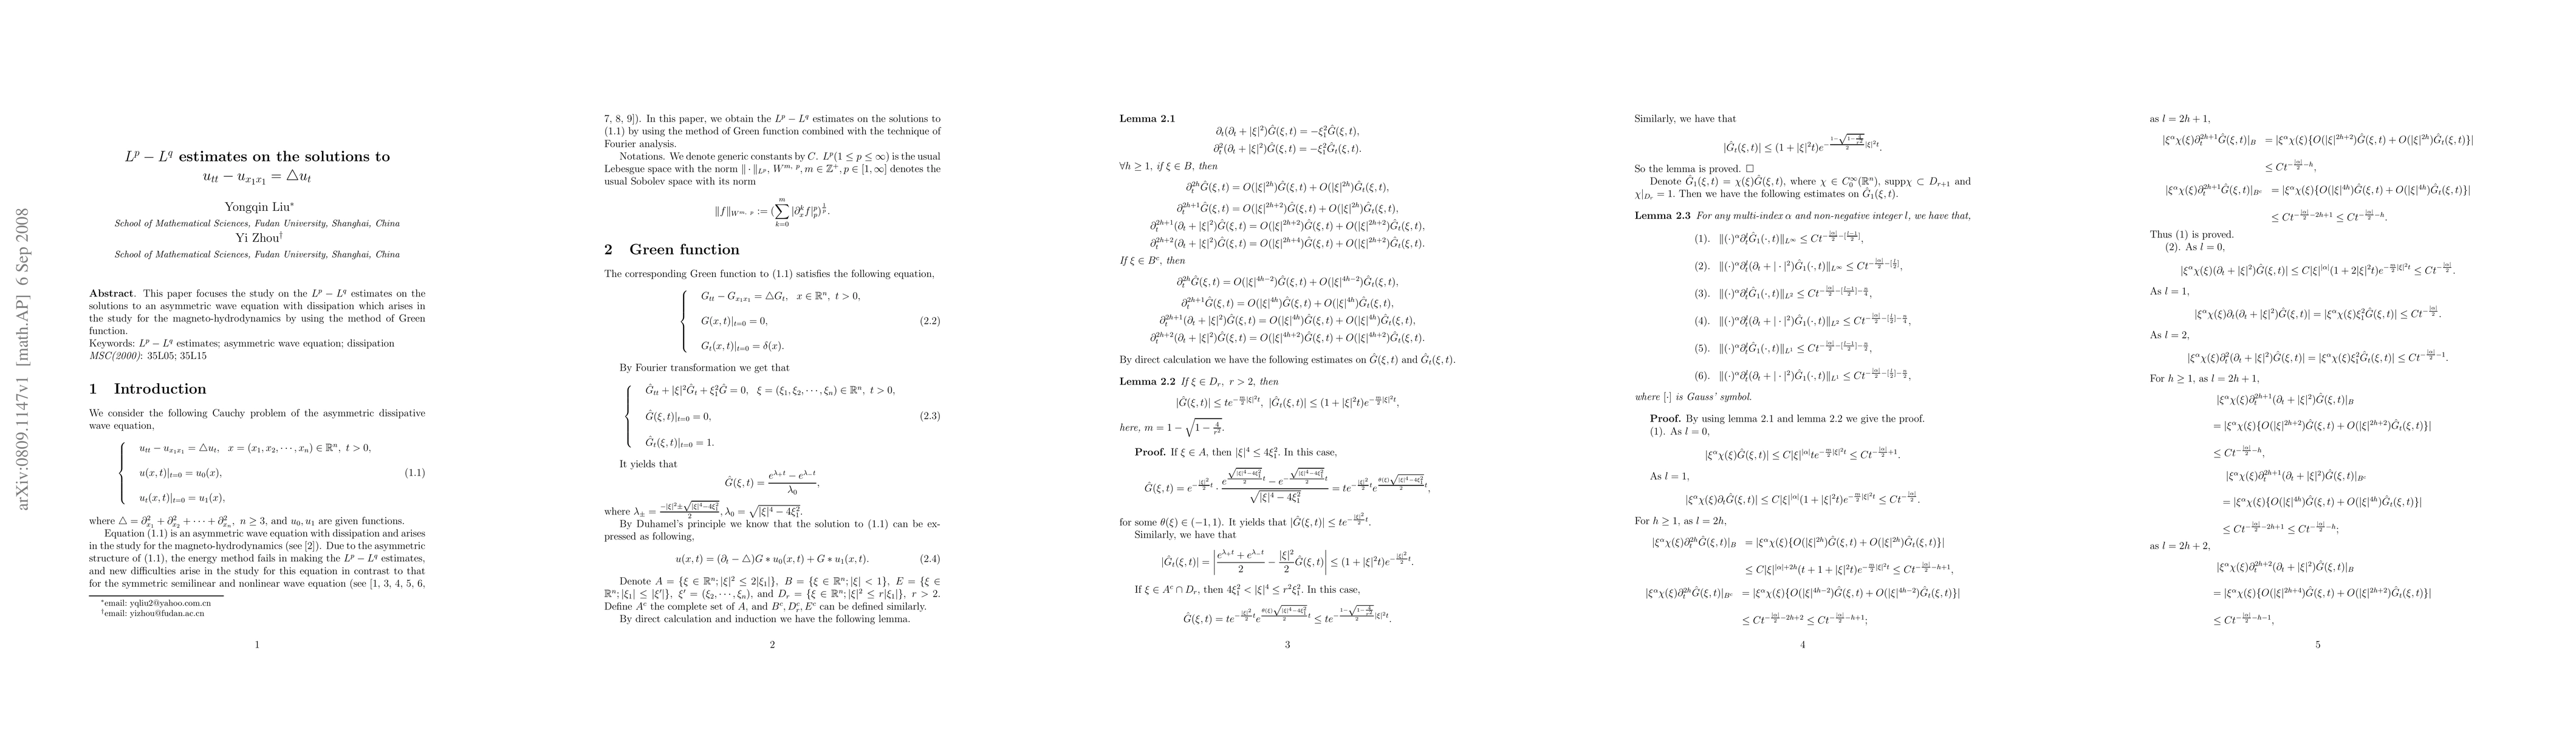 arXiv:0809.1147v1 [math.AP] 6 Sep 2008
L^p − L^q estimates on the solutions to
u_{tt} − u_{x_1x_1} = △u_t
Yongqin Liu*
School of Mathematical Sciences, Fudan University, Shanghai, China
Yi Zhou†
School of Mathematical Sciences, Fudan University, Shanghai, China
Abstract. This paper focuses the study on the L^p − L^q estimates on the
solutions to an asymmetric wave equation with dissipation which arises in
the study for the magneto-hydrodynamics by using the method of Green
function.
Keywords: L^p − L^q estimates; asymmetric wave equation; dissipation
MSC(2000): 35L05; 35L15
1 Introduction
We consider the following Cauchy problem of the asymmetric dissipative
wave equation,
u_{tt} − u_{x_1x_1} = △u_t, x = (x_1, x_2, ⋯, x_n) ∈ ℝ^n, t > 0,
u(x, t)|_{t=0} = u_0(x), (1.1)
u_t(x, t)|_{t=0} = u_1(x),
where △ = ∂²_{x_1} + ∂²_{x_2} + ⋯ + ∂²_{x_n}, n ≥ 3, and u_0, u_1 are given functions.
Equation (1.1) is an asymmetric wave equation with dissipation and arises
in the study for the magneto-hydrodynamics (see [2]). Due to the asymmetric
structure of (1.1), the energy method fails in making the L^p − L^q estimates,
and new difficulties arise in the study for this equation in contrast to that
for the symmetric semilinear and nonlinear wave equation (see [1, 3, 4, 5, 6,
*email: yqliu2@yahoo.com.cn
†email: yizhou@fudan.ac.cn
1
7, 8, 9]). In this paper, we obtain the L^p − L^q estimates on the solutions to
(1.1) by using the method of Green function combined with the technique of
Fourier analysis.
Notations. We denote generic constants by C. L^p(1 ≤ p ≤ ∞) is the usual
Lebesgue space with the norm ‖·‖_{L^p}, W^{m, p}, m ∈ ℤ^+, p ∈ [1, ∞] denotes the
usual Sobolev space with its norm
‖f‖_{W^{m, p}} := (∑_{k=0}^{m} |∂_x^k f|_p^p)^{1/p}.
2 Green function
The corresponding Green function to (1.1) satisfies the following equation,
G_{tt} − G_{x_1x_1} = △G_t, x ∈ ℝ^n, t > 0,
G(x, t)|_{t=0} = 0, (2.2)
G_t(x, t)|_{t=0} = δ(x).
By Fourier transformation we get that
Ĝ_{tt} + |ξ|²Ĝ_t + ξ_1²Ĝ = 0, ξ = (ξ_1, ξ_2, ⋯, ξ_n) ∈ ℝ^n, t > 0,
Ĝ(ξ, t)|_{t=0} = 0, (2.3)
Ĝ_t(ξ, t)|_{t=0} = 1.
It yields that
Ĝ(ξ, t) = (e^{λ_+t} − e^{λ_−t})/λ_0,
where λ_± = (−|ξ|² ± √(|ξ|⁴−4ξ_1²))/2, λ_0 = √(|ξ|⁴ − 4ξ_1²).
By Duhamel's principle we know that the solution to (1.1) can be ex-
pressed as following,
u(x, t) = (∂_t − △)G ∗ u_0(x, t) + G ∗ u_1(x, t). (2.4)
Denote A = {ξ ∈ ℝ^n; |ξ|² ≤ 2|ξ_1|}, B = {ξ ∈ ℝ^n; |ξ| < 1}, E = {ξ ∈
ℝ^n; |ξ_1| ≤ |ξ'|}, ξ' = (ξ_2, ⋯, ξ_n), and D_r = {ξ ∈ ℝ^n; |ξ|² ≤ r|ξ_1|}, r > 2.
Define A^c the complete set of A, and B^c, D_r^c, E^c can be defined similarly.
By direct calculation and induction we have the following lemma.
2
Lemma 2.1
∂_t(∂_t + |ξ|²)Ĝ(ξ, t) = −ξ_1²Ĝ(ξ, t),
∂_t²(∂_t + |ξ|²)Ĝ(ξ, t) = −ξ_1²Ĝ_t(ξ, t).
∀h ≥ 1, if ξ ∈ B, then
∂_t^{2h}Ĝ(ξ, t) = O(|ξ|^{2h})Ĝ(ξ, t) + O(|ξ|^{2h})Ĝ_t(ξ, t),
∂_t^{2h+1}Ĝ(ξ, t) = O(|ξ|^{2h+2})Ĝ(ξ, t) + O(|ξ|^{2h})Ĝ_t(ξ, t),
∂_t^{2h+1}(∂_t + |ξ|²)Ĝ(ξ, t) = O(|ξ|^{2h+2})Ĝ(ξ, t) + O(|ξ|^{2h+2})Ĝ_t(ξ, t),
∂_t^{2h+2}(∂_t + |ξ|²)Ĝ(ξ, t) = O(|ξ|^{2h+4})Ĝ(ξ, t) + O(|ξ|^{2h+2})Ĝ_t(ξ, t).
If ξ ∈ B^c, then
∂_t^{2h}Ĝ(ξ, t) = O(|ξ|^{4h−2})Ĝ(ξ, t) + O(|ξ|^{4h−2})Ĝ_t(ξ, t),
∂_t^{2h+1}Ĝ(ξ, t) = O(|ξ|^{4h})Ĝ(ξ, t) + O(|ξ|^{4h})Ĝ_t(ξ, t),
∂_t^{2h+1}(∂_t + |ξ|²)Ĝ(ξ, t) = O(|ξ|^{4h})Ĝ(ξ, t) + O(|ξ|^{4h})Ĝ_t(ξ, t),
∂_t^{2h+2}(∂_t + |ξ|²)Ĝ(ξ, t) = O(|ξ|^{4h+2})Ĝ(ξ, t) + O(|ξ|^{4h+2})Ĝ_t(ξ, t).
By direct calculation we have the following estimates on Ĝ(ξ, t) and Ĝ_t(ξ, t).
Lemma 2.2 If ξ ∈ D_r, r > 2, then
|Ĝ(ξ, t)| ≤ te^{−(m/2)|ξ|²t}, |Ĝ_t(ξ, t)| ≤ (1 + |ξ|²t)e^{−(m/2)|ξ|²t},
here, m = 1 − √(1 − 4/r²).
Proof. If ξ ∈ A, then |ξ|⁴ ≤ 4ξ_1². In this case,
Ĝ(ξ, t) = e^{−(|ξ|²/2)t} · (e^{(√(|ξ|⁴−4ξ_1²)/2)t} − e^{−(√(|ξ|⁴−4ξ_1²)/2)t})/√(|ξ|⁴ − 4ξ_1²) = te^{−(|ξ|²/2)t}e^{(θ(ξ)√(|ξ|⁴−4ξ_1²)/2)t},
for some θ(ξ) ∈ (−1, 1). It yields that |Ĝ(ξ, t)| ≤ te^{−(|ξ|²/2)t}.
Similarly, we have that
|Ĝ_t(ξ, t)| = |(e^{λ_+t} + e^{λ_−t})/2 − (|ξ|²/2)Ĝ(ξ, t)| ≤ (1 + |ξ|²t)e^{−(|ξ|²/2)t}.
If ξ ∈ A^c ∩ D_r, then 4ξ_1² < |ξ|⁴ ≤ r²ξ_1². In this case,
Ĝ(ξ, t) = te^{−(|ξ|²/2)t}e^{(θ(ξ)√(|ξ|⁴−4ξ_1²)/2)t} ≤ te^{−((1−√(1−4/r²))/2)|ξ|²t}.
3
Similarly, we have that
|Ĝ_t(ξ, t)| ≤ (1 + |ξ|²t)e^{−((1−√(1−4/r²))/2)|ξ|²t}.
So the lemma is proved. □
Denote Ĝ_1(ξ, t) = χ(ξ)Ĝ(ξ, t), where χ ∈ C_0^∞(ℝ^n), suppχ ⊂ D_{r+1} and
χ|_{D_r} = 1. Then we have the following estimates on Ĝ_1(ξ, t).
Lemma 2.3 For any multi-index α and non-negative integer l, we have that,
(1). ‖(·)^α∂_t^lĜ_1(·, t)‖_{L^∞} ≤ Ct^{−|α|/2−[(l−1)/2]},
(2). ‖(·)^α∂_t^l(∂_t + |·|²)Ĝ_1(·, t)‖_{L^∞} ≤ Ct^{−|α|/2−[l/2]},
(3). ‖(·)^α∂_t^lĜ_1(·, t)‖_{L²} ≤ Ct^{−|α|/2−[(l−1)/2]−n/4},
(4). ‖(·)^α∂_t^l(∂_t + |·|²)Ĝ_1(·, t)‖_{L²} ≤ Ct^{−|α|/2−[l/2]−n/4},
(5). ‖(·)^α∂_t^lĜ_1(·, t)‖_{L¹} ≤ Ct^{−|α|/2−[(l−1)/2]−n/2},
(6). ‖(·)^α∂_t^l(∂_t + |·|²)Ĝ_1(·, t)‖_{L¹} ≤ Ct^{−|α|/2−[l/2]−n/2},
where [·] is Gauss' symbol.
Proof. By using lemma 2.1 and lemma 2.2 we give the proof.
(1). As l = 0,
|ξ^αχ(ξ)Ĝ(ξ, t)| ≤ C|ξ|^{|α|}te^{−(m/2)|ξ|²t} ≤ Ct^{−|α|/2+1}.
As l = 1,
|ξ^αχ(ξ)∂_tĜ(ξ, t)| ≤ C|ξ|^{|α|}(1 + |ξ|²t)e^{−(m/2)|ξ|²t} ≤ Ct^{−|α|/2}.
For h ≥ 1, as l = 2h,
|ξ^αχ(ξ)∂_t^{2h}Ĝ(ξ, t)|_B = |ξ^αχ(ξ){O(|ξ|^{2h})Ĝ(ξ, t) + O(|ξ|^{2h})Ĝ_t(ξ, t)}|
≤ C|ξ|^{|α|+2h}(t + 1 + |ξ|²t)e^{−(m/2)|ξ|²t} ≤ Ct^{−|α|/2−h+1},
|ξ^αχ(ξ)∂_t^{2h}Ĝ(ξ, t)|_{B^c} = |ξ^αχ(ξ){O(|ξ|^{4h−2})Ĝ(ξ, t) + O(|ξ|^{4h−2})Ĝ_t(ξ, t)}|
≤ Ct^{−|α|/2−2h+2} ≤ Ct^{−|α|/2−h+1};
4
as l = 2h + 1,
|ξ^αχ(ξ)∂_t^{2h+1}Ĝ(ξ, t)|_B = |ξ^αχ(ξ){O(|ξ|^{2h+2})Ĝ(ξ, t) + O(|ξ|^{2h})Ĝ_t(ξ, t)}|
≤ Ct^{−|α|/2−h},
|ξ^αχ(ξ)∂_t^{2h+1}Ĝ(ξ, t)|_{B^c} = |ξ^αχ(ξ){O(|ξ|^{4h})Ĝ(ξ, t) + O(|ξ|^{4h})Ĝ_t(ξ, t)}|
≤ Ct^{−|α|/2−2h+1} ≤ Ct^{−|α|/2−h}.
Thus (1) is proved.
(2). As l = 0,
|ξ^αχ(ξ)(∂_t + |ξ|²)Ĝ(ξ, t)| ≤ C|ξ|^{|α|}(1 + 2|ξ|²t)e^{−(m/2)|ξ|²t} ≤ Ct^{−|α|/2}.
As l = 1,
|ξ^αχ(ξ)∂_t(∂_t + |ξ|²)Ĝ(ξ, t)| = |ξ^αχ(ξ)ξ_1²Ĝ(ξ, t)| ≤ Ct^{−|α|/2}.
As l = 2,
|ξ^αχ(ξ)∂_t²(∂_t + |ξ|²)Ĝ(ξ, t)| = |ξ^αχ(ξ)ξ_1²Ĝ_t(ξ, t)| ≤ Ct^{−|α|/2−1}.
For h ≥ 1, as l = 2h + 1,
|ξ^αχ(ξ)∂_t^{2h+1}(∂_t + |ξ|²)Ĝ(ξ, t)|_B
= |ξ^αχ(ξ){O(|ξ|^{2h+2})Ĝ(ξ, t) + O(|ξ|^{2h+2})Ĝ_t(ξ, t)}|
≤ Ct^{−|α|/2−h},
|ξ^αχ(ξ)∂_t^{2h+1}(∂_t + |ξ|²)Ĝ(ξ, t)|_{B^c}
= |ξ^αχ(ξ){O(|ξ|^{4h})Ĝ(ξ, t) + O(|ξ|^{4h})Ĝ_t(ξ, t)}|
≤ Ct^{−|α|/2−2h+1} ≤ Ct^{−|α|/2−h};
as l = 2h + 2,
|ξ^αχ(ξ)∂_t^{2h+2}(∂_t + |ξ|²)Ĝ(ξ, t)|_B
= |ξ^αχ(ξ){O(|ξ|^{2h+4})Ĝ(ξ, t) + O(|ξ|^{2h+2})Ĝ_t(ξ, t)}|
≤ Ct^{−|α|/2−h−1},
5